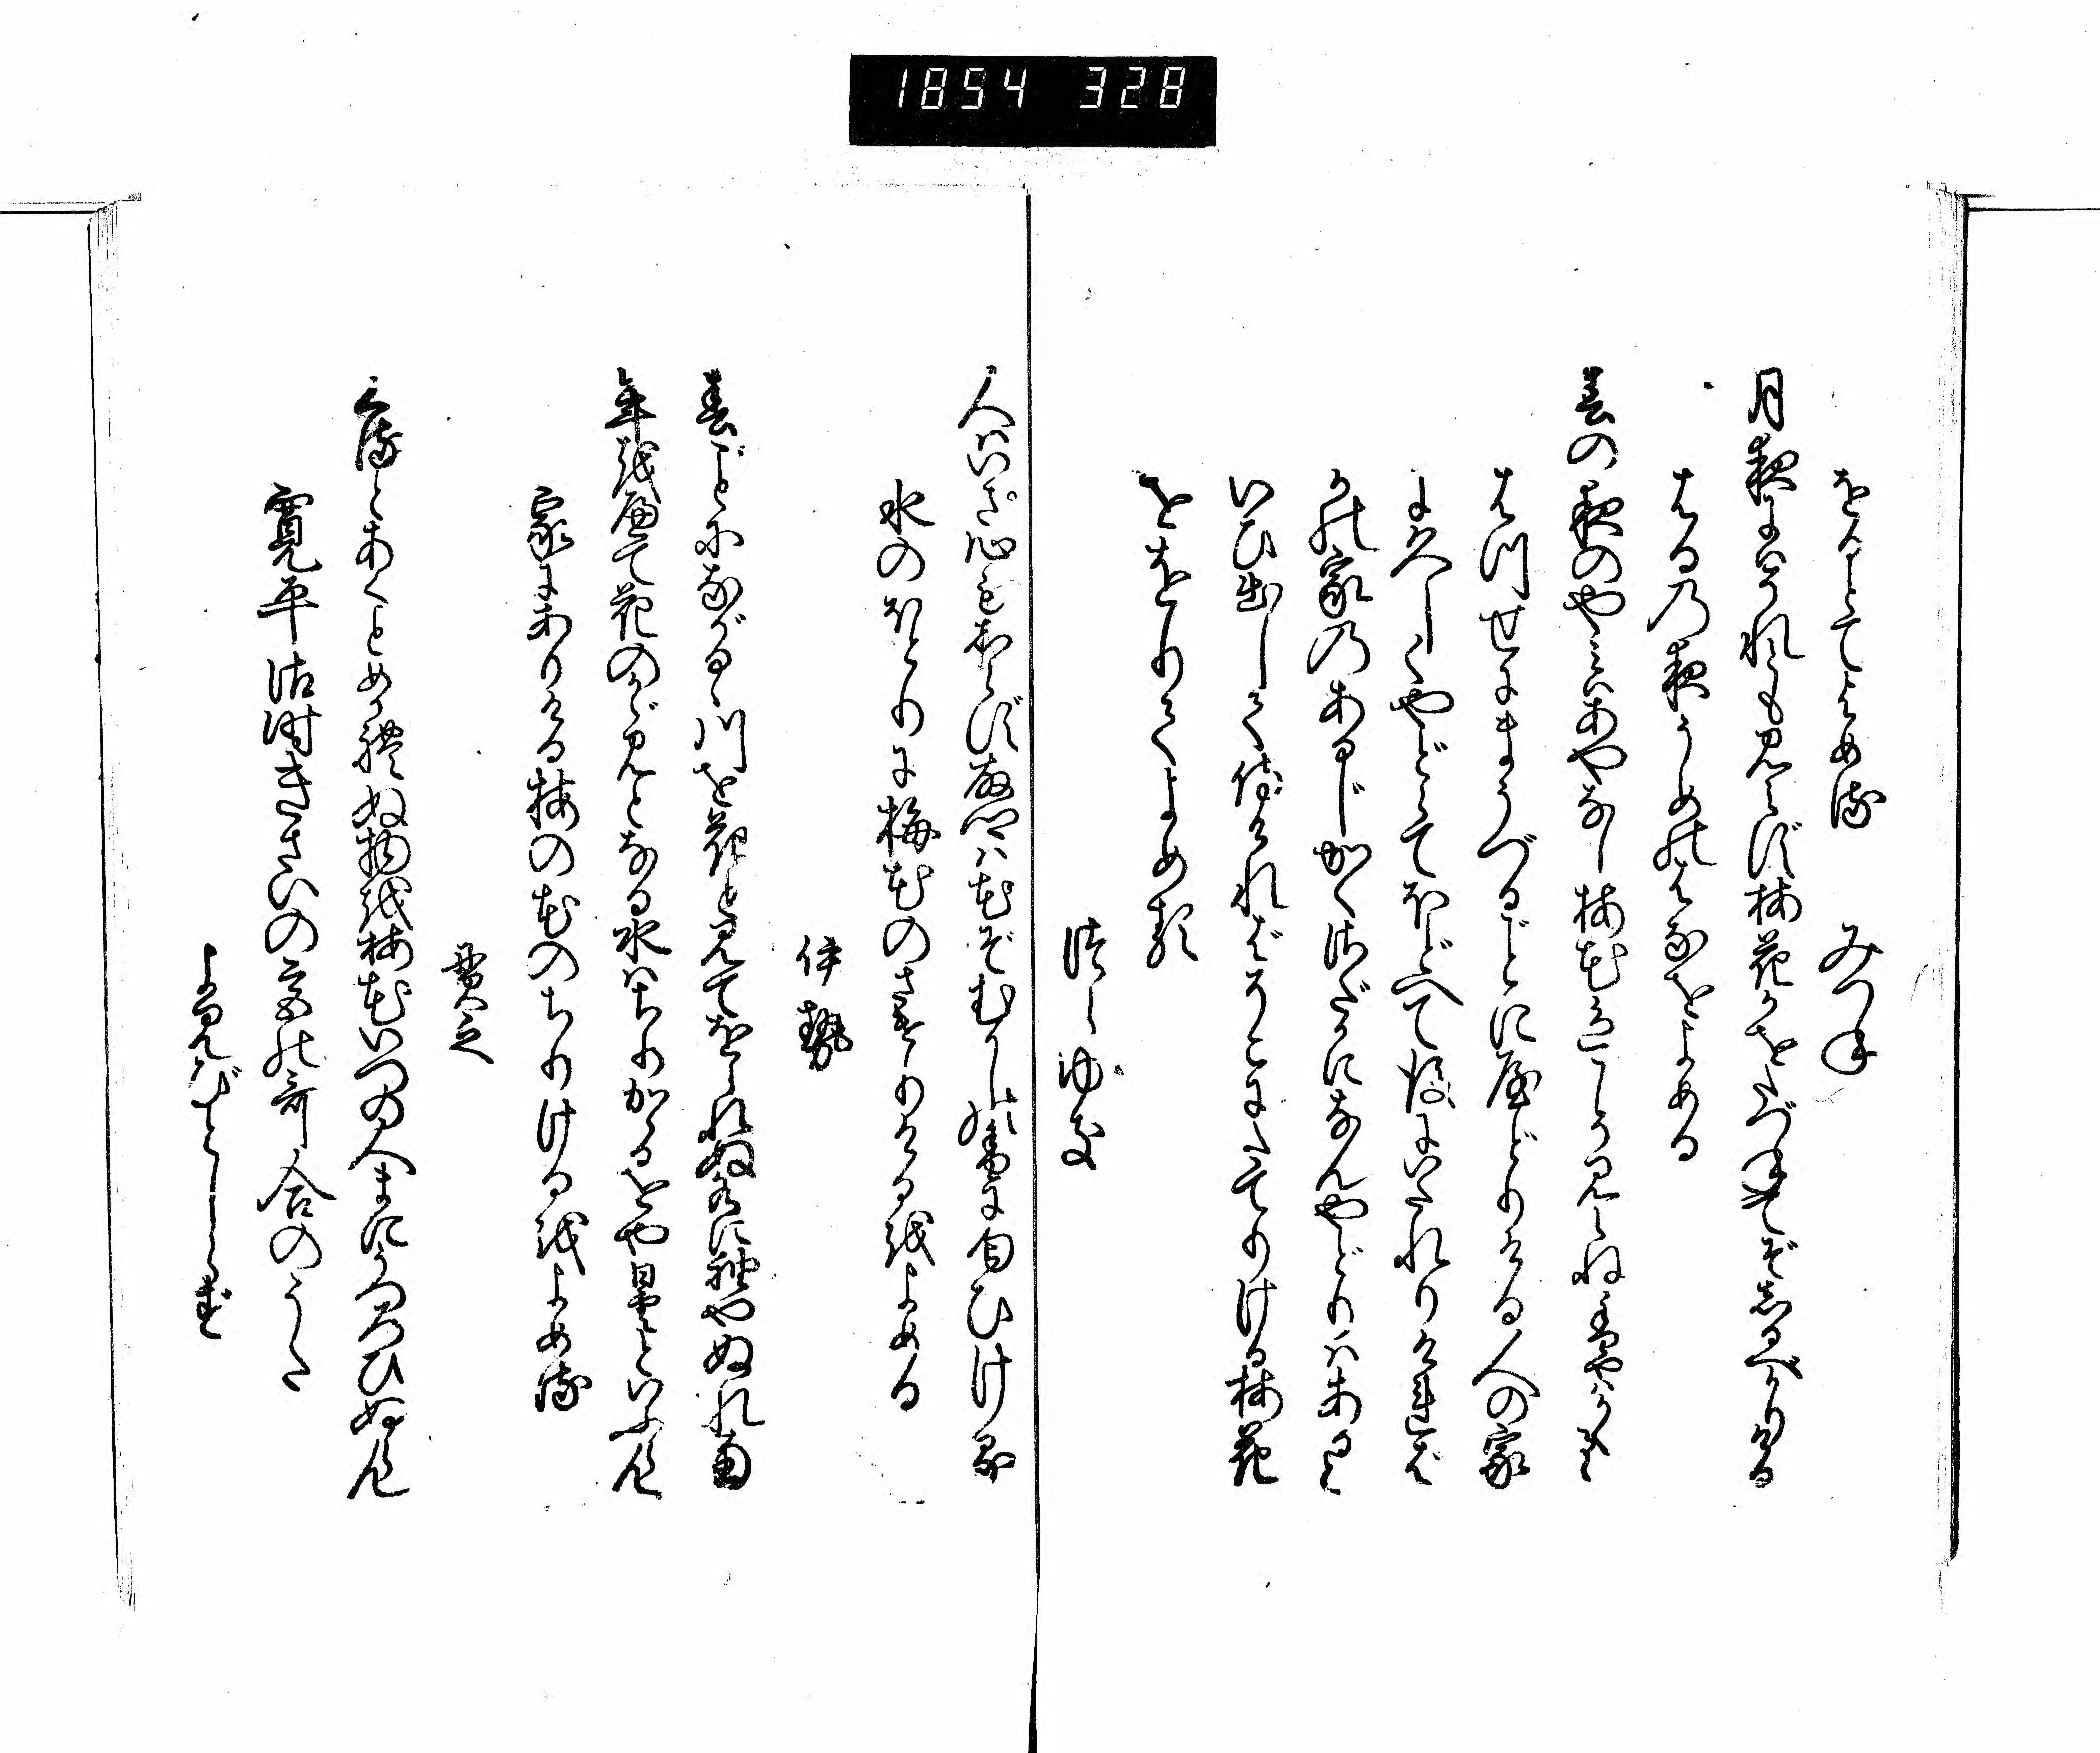 1854 328
をるとてよめる　みつね
月夜にはそれとも見えず梅花かをたづねてぞしるべかりける
はるの夜うめのはなをよめる
春の夜のやみはあやなし梅花色こそ見えね香やはかくるゝ
はつせにまうづるごとに屋どりける人の家
にひさしくやどらでほどへて後にいたれりければ
かの家のあるじかくさだかになんやどりはあると
いひ出して侍ければそこにたてりける梅花
ををりてよめる
つらゆき
人はいさ心もしらず故郷は花ぞむかしの香に匂ひける
水のほとりに梅花のさけりけるをよめる
伊勢
春ごとにながるゝ川を花と見てをられぬ水に袖やぬれ南
年をへて花のかゞみとなる水はちりかゝるをや曇るといふらん
家にありける梅の花のちりけるをよめる
貫之
くるとあくとめかれぬ物を梅花いつの人まにうつろひぬらん
寛平御時きさいの宮の哥合のうた
よみびとしらず